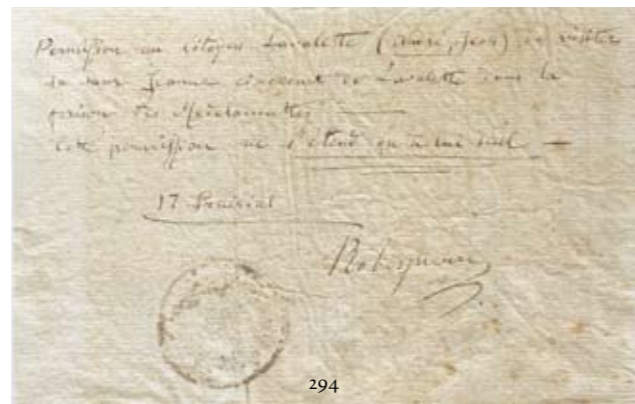 Permission au citoyen Lavalette (André, Jean) de visiter
sa sœur Jeanne de Lavalette dans la
prison des Madelonnettes
cette permission ne s'étend qu'à lui seul —
17 Prairial
294